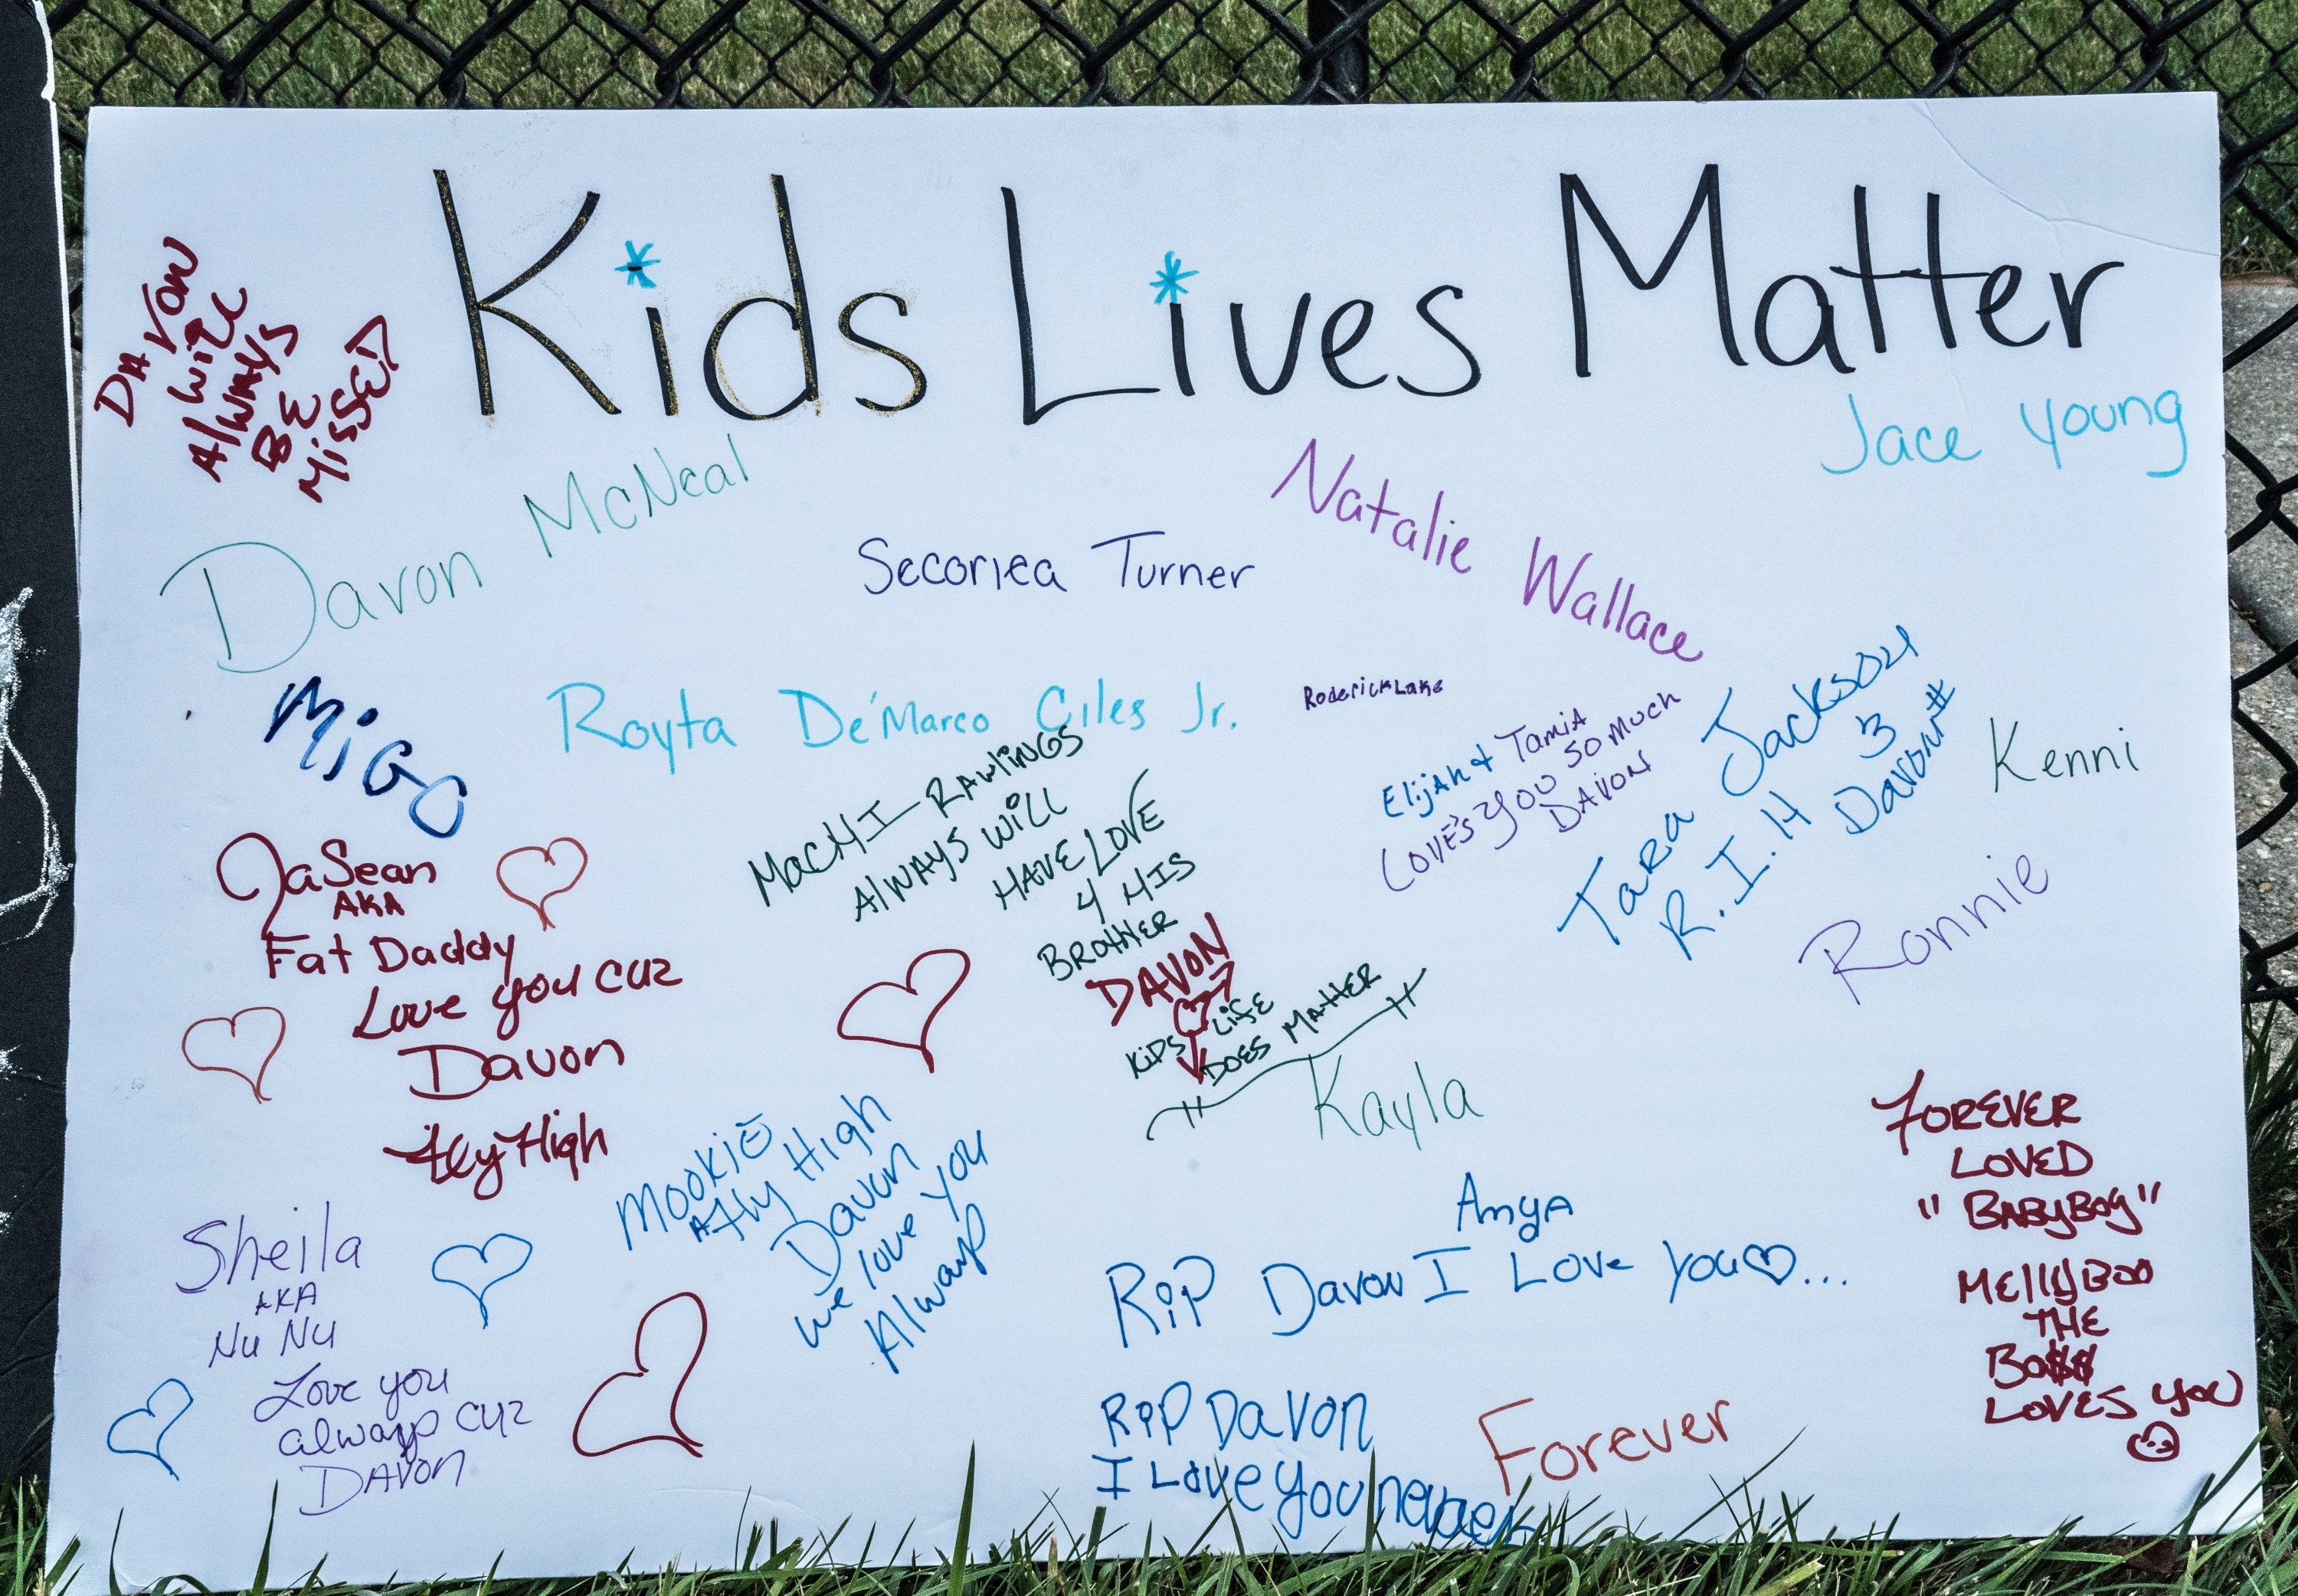 Kids Lives Matter
DAVON
Will
Always
BE
MissED
Jace Young
Davon McNeal
Secoriea Turner
Natalie Wallace
Royta De'Marco Giles Jr.
RoderickLake
MiGO
MacHI RAWlINGS
AlWAYS WilL
HAVE LOVE
4 HIS
BROTHER
DAVON
KiDS LifE
DOES MATTER
ElijAH & TamiA
LOVE'S YOU SO MUCH
DAVON
TaRa Jackson
R.I.H
Davon
Kenni
Ronnie
JaSean
AKA
Fat Daddy
Love you CUZ
Davon
Fly High
Kayla
MOOKIE
Fly High
Davon
we love you
Always
Sheila
AKA
NU NU
Love you
always CUZ
DAVON
AnyA
RiP Davon I Love You...
RiP DaVON
I Love You
Forever
FOREVER
LOVED
"BABYBOY"
MEllYBOO
THE
BO$$
LOVES YOU